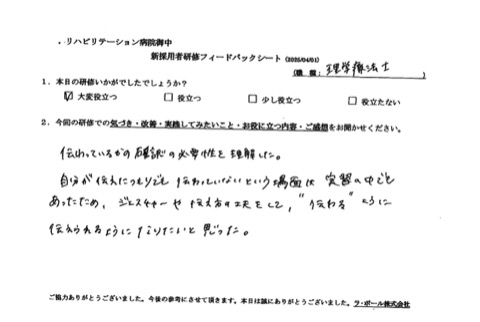 ．リハビリテーション病院御中
新採用者研修フィードバックシート (2025/04/01)
(職 種： 理学療法士 )
1．本日の研修いかがでしたでしょうか？
☑ 大変役立つ □ 役立つ □ 少し役立つ □ 役立たない
2．今回の研修での気づき・改善・実践してみたいこと・お役に立つ内容・ご感想をお聞かせください。
伝わっているかの確認の必要性を理解した。
自分が伝えたつもりでも伝わっていないという場面は実習の中でも
あったため、ジェスチャーや伝え方の工夫をして、"伝わる"ように
伝えられるようになりたいと思った。
ご協力ありがとうございました。今後の参考にさせて頂きます。本日は誠にありがとうございました。ラ・ポール株式会社